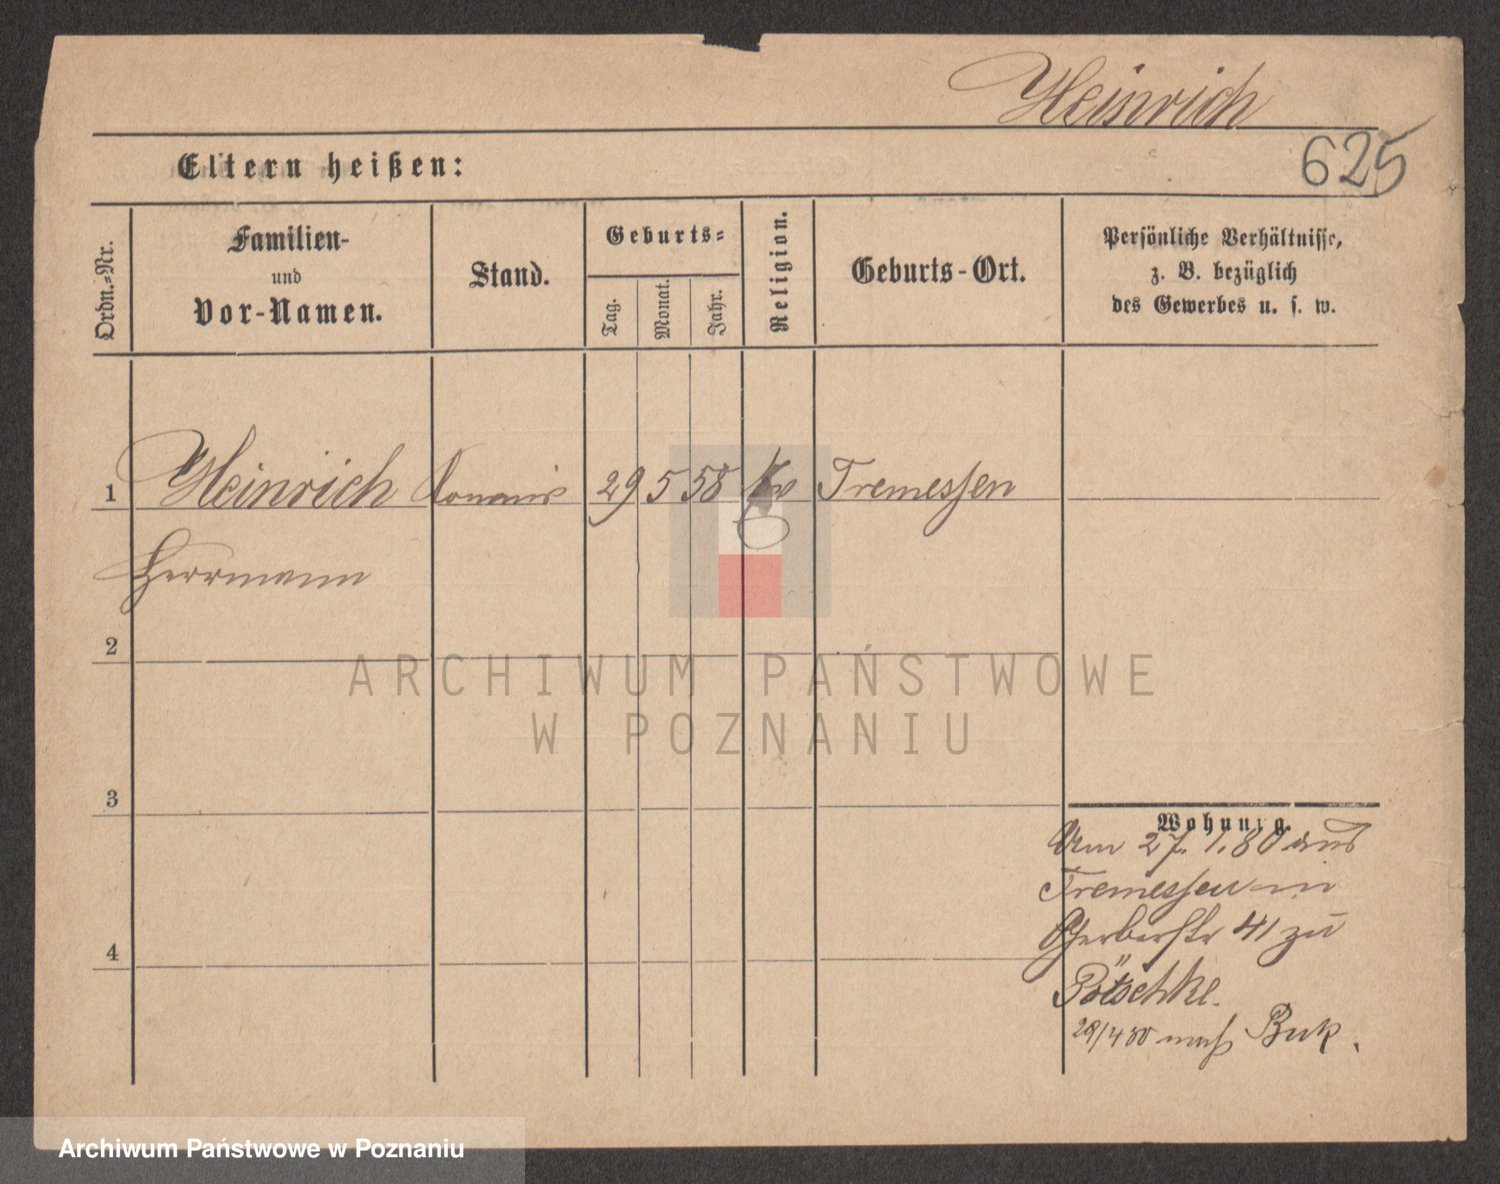 Heinrich
625
Eltern heißen:
Ordn.-Nr.
Familien-
und
Vor-Namen.
Stand.
Geburts-
Tag.
Monat.
Jahr.
Religion.
Geburts-Ort.
Persönliche Verhältnisse,
z. B. bezüglich
des Gewerbes u. s. w.
1 Heinrich Commis 29 5 58 Tremessen
Herrmann
2
3
4
Wohnung.
Am 27. 1. 80 aus
Tremessen in
Gerberstr 41 zu
Pötschke.
29/4 80 nach Buk.
ARCHIWUM PAŃSTWOWE
W POZNANIU
Archiwum Państwowe w Poznaniu